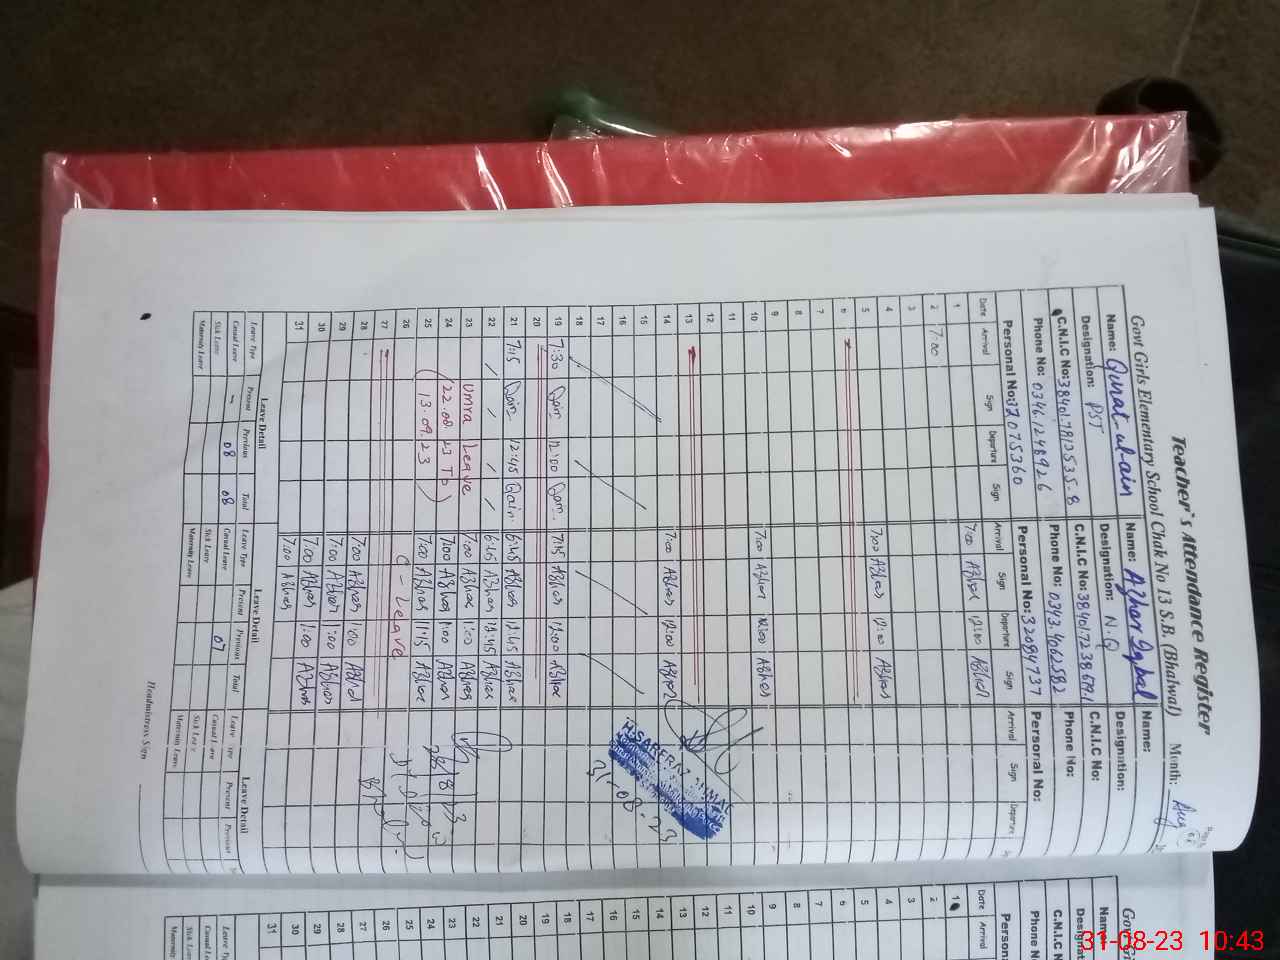 Teacher's Attendance Register
Govt Girls Elementary School Chak No 13 S.B. (Bhalwal) Month: Aug
Name: Qurat-ul-ain Name: Azhar Iqbal Name:
Designation: PST Designation: N.Q Designation:
C.N.I.C No: 38401.7812535-8 C.N.I.C No: C.N.I.C No:
Phone No: 0346.1248926 Phone No: 0343.4062582 Phone No:
Personal No: 32075360 Personal No: 32084737 Personal No:
Date Arrival Sign Departure Sign Arrival Sign Departure Sign Arrival Sign Departure
1 7:00 Azhar 12:00 Azhar
2 7:00
3
4
5 7:00 Azhar 12:00 Azhar
6
7
8
9
10 7:00 Azhar 12:00 Azhar
11
12
13
14 7:00 Azhar 12:00 Azhar
15
16
17
18
19 7:30 Qain 12:00 Qain 7:15 Azhar 12:00 Azhar
20
21 7:15 Qain 12:45 Qain 6:45 Azhar 12:45 Azhar
22 6:45 Azhar 12:45 Azhar
23 Umra Leave 7:00 Azhar 1:00 Azhar
24 (22.08.23 To 7:00 Azhar 1:00 Azhar
25 13.09.23) 7:00 Azhar 11:15 Azhar
26 C-Leave
27
28 7:00 Azhar 1:00 Azhar
29 7:00 Azhar 1:00 Azhar
30 7:00 Azhar 1:00 Azhar
31 7:00 Azhar
SARFRAZ
31-08-23
Leave Detail Leave Detail Leave Detail
Leave Type Present Previous Total Leave Type Present Previous Total Leave Type Present Previous
Casual Leave 08 08 Casual Leave 07 Casual Leave
Sick Leave Sick Leave Sick Leave
Maternity Leave Maternity Leave Maternity Leave
Headmistress Sign
Govt Gi
Name
Designat
C.N.I.C N
Phone No
Persona
Date Arrival
1
2
3
4
5
6
7
8
9
10
11
12
13
14
15
16
17
18
19
20
21
22
23
24
25
26
27
28
29
30
31
Leave Ty
Casual L
Sick Leave
Maternity
31-08-23 10:43